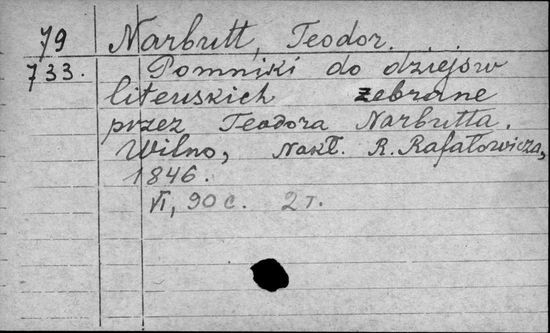 79 Narbutt, Teodor.
733. Pomniki do dziejów
litewskich zebrane
przez Teodora Narbutta.
Wilno, nakł. R. Rafałowicza,
1846.
VI, 90 c. 2 т.